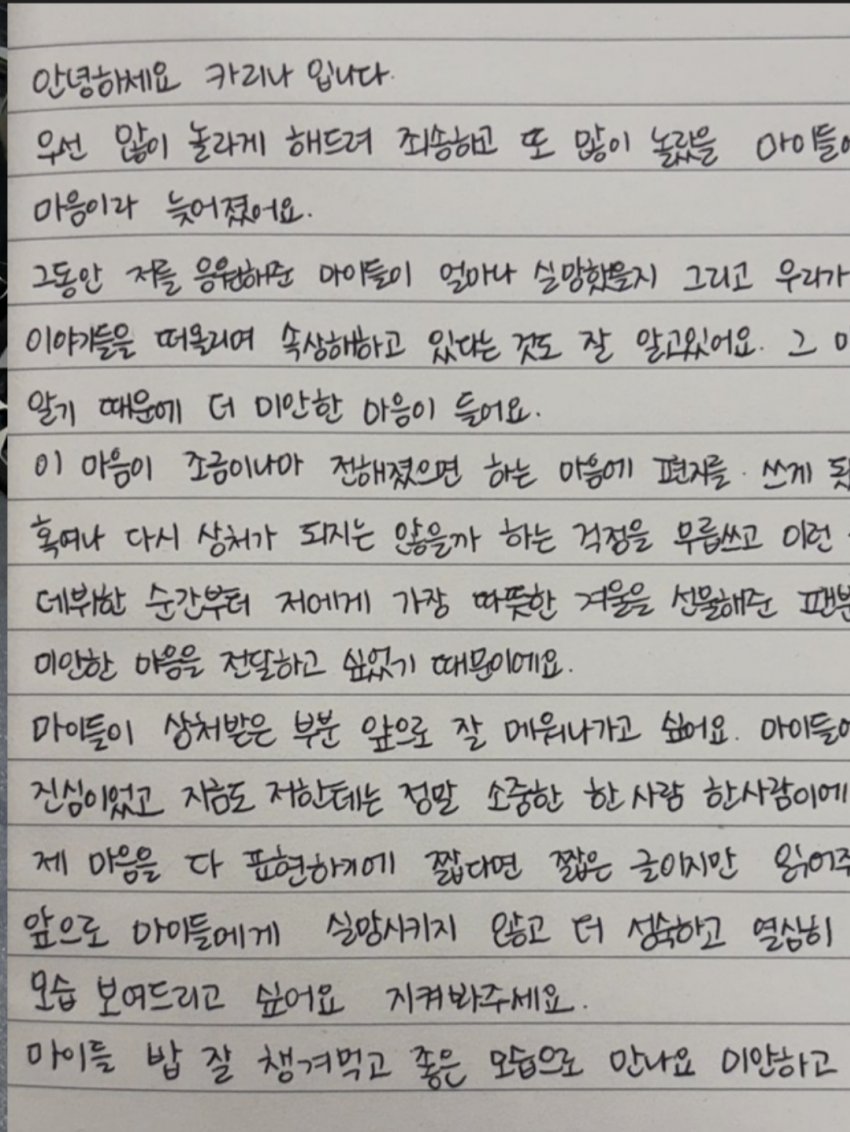 안녕하세요 카리나 입니다.
우선 많이 놀라게 해드려 죄송하고 또 많이 놀랐을 마이들에
마음이라 늦어졌어요.
그동안 저를 응원해준 마이들이 얼마나 실망했을지 그리고 우리가
이야기들을 떠올리며 속상해하고 있다는 것도 잘 알고있어요. 그
알기 때문에 더 미안한 마음이 들어요.
이 마음이 조금이나마 전해졌으면 하는 마음에 편지를 쓰게
혹여나 다시 상처가 되지는 않을까 하는 걱정을 무릅쓰고 이런
데뷔한 순간부터 저에게 가장 따뜻한 겨울을 선물해준 팬분
미안한 마음을 전달하고 싶었기 때문이에요.
마이들이 상처받은 부분 앞으로 잘 메워나가고 싶어요. 마이들에
진심이었고 지금도 저한테는 정말 소중한 한 사람 한사람이에
제 마음을 다 표현하기에 짧다면 짧은 글이지만 읽어주
앞으로 마이들에게 실망시키지 않고 더 성숙하고 열심히
모습 보여드리고 싶어요 지켜봐주세요.
마이들 밥 잘 챙겨먹고 좋은 모습으로 만나요 미안하고